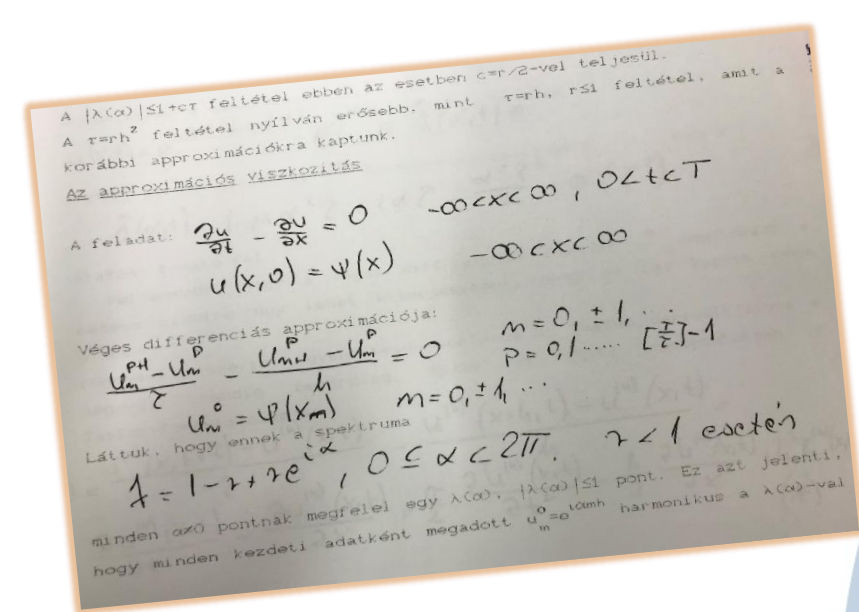 A |λ(α)|≤1+cτ feltétel ebben az esetben c=r/2-vel teljesül.
A τ=rh² feltétel nyilván erősebb, mint τ=rh, r≤1 feltétel, amit a
korábbi approximációkra kaptunk.
Az approximációs viszkozitás
A feladat: ∂u/∂t - ∂u/∂x = 0   -∞<x<∞, 0<t<T
u(x,0) = ψ(x)   -∞<x<∞
Véges differenciás approximációja:
(u_m^{p+1} - u_m^p)/τ - (u_{m+1}^p - u_m^p)/h = 0   m = 0, ±1, ...
p = 0,1..... [T/τ]-1
u_m^0 = ψ(x_m)   m = 0, ±1, ...
Láttuk, hogy ennek a spektruma
λ = 1-r+re^{iα}, 0 ≤ α < 2π. r < 1 esetén
minden α≠0 pontnak megfelel egy λ(α), |λ(α)|≤1 pont. Ez azt jelenti,
hogy minden kezdeti adatként megadott u_m^0=e^{iαmh} harmonikus a λ(α)-val